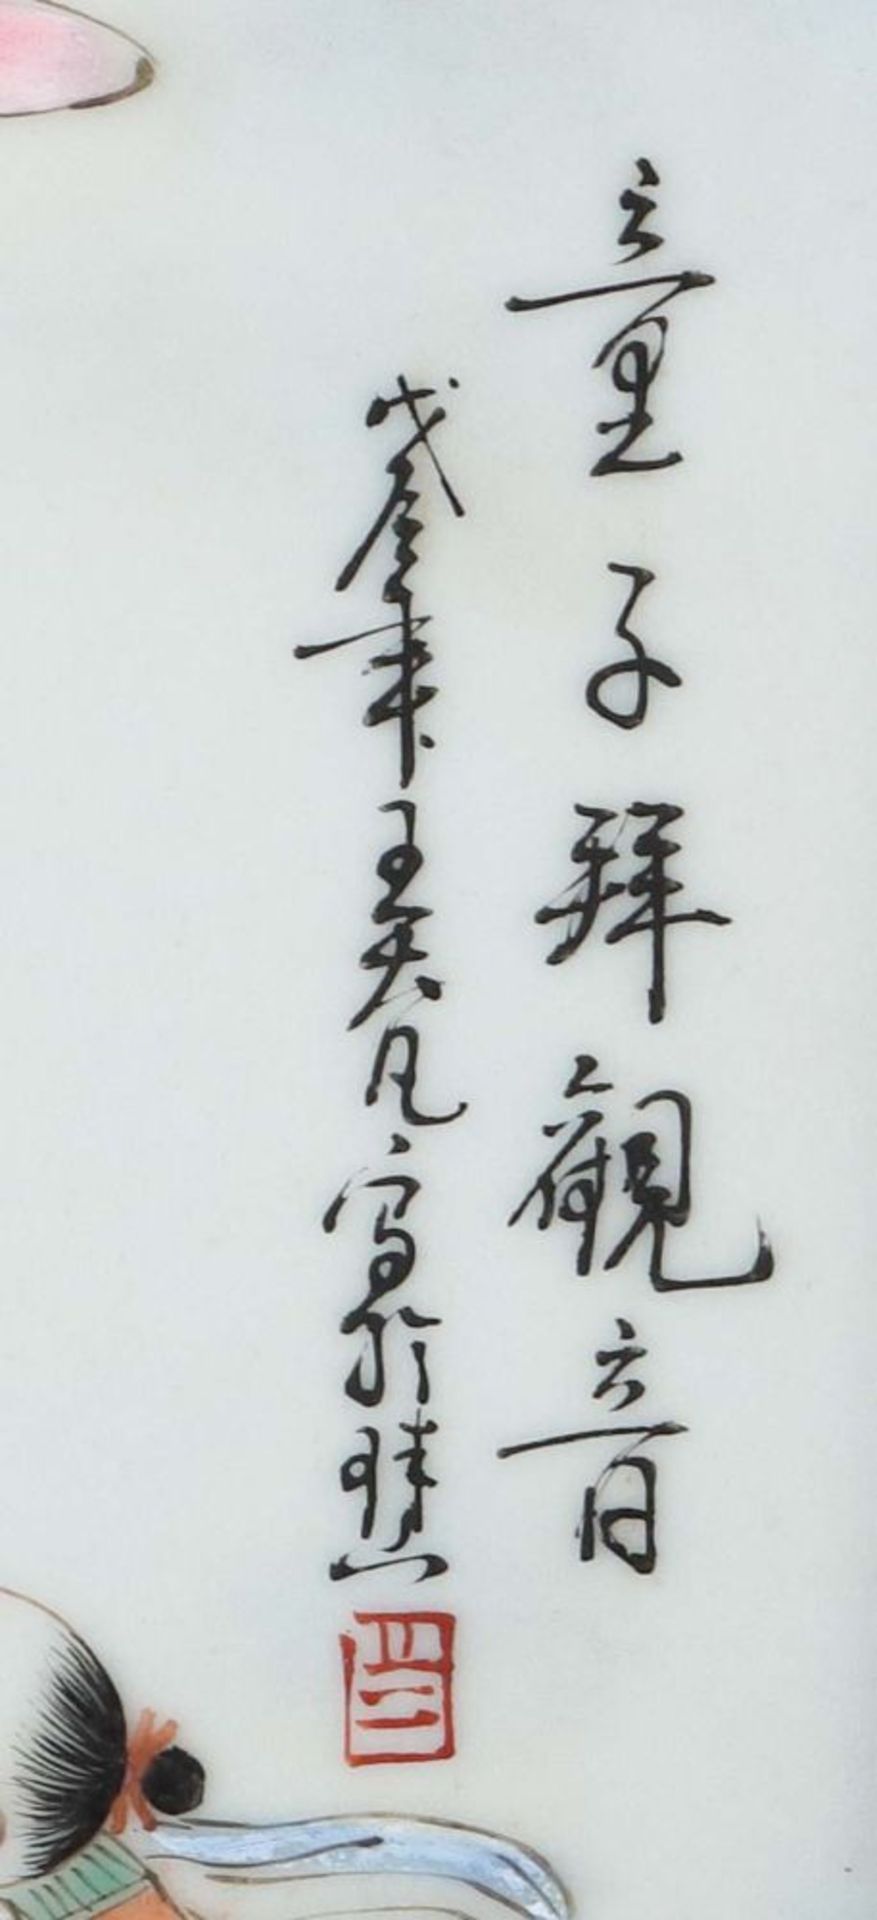 童子拜觀音
戊辰年王大凡寫於珠山